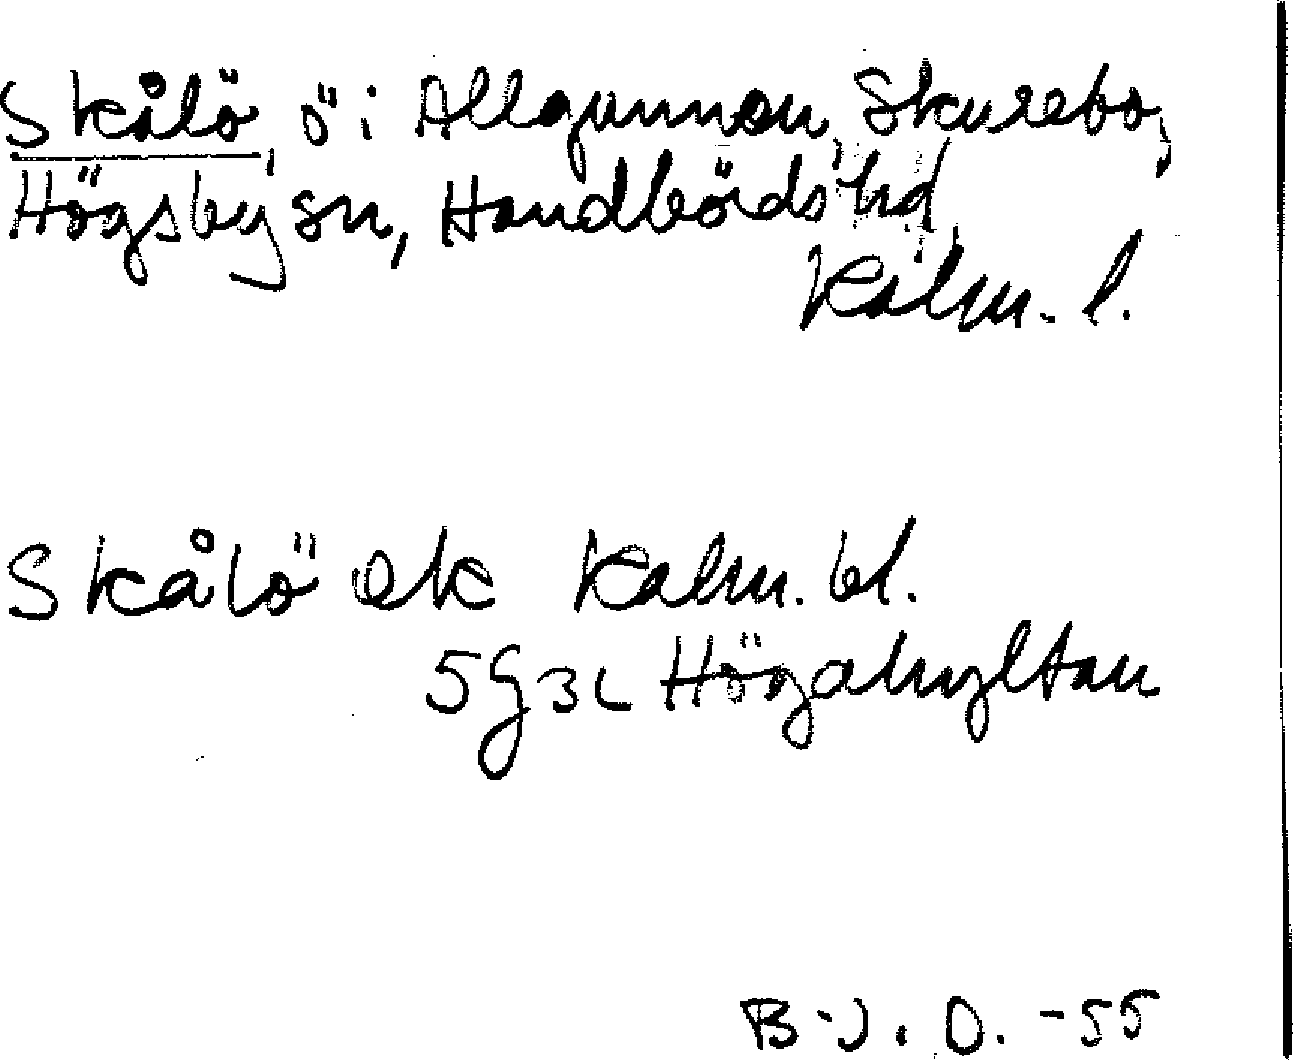 Skålö, ö i Allgunnen, Skurebo,
Högsby sn, Handbörds hd,
Kalm. l.
Skålö ek Kalm. bl.
5G3c Högahyltan
B-J. O. -55